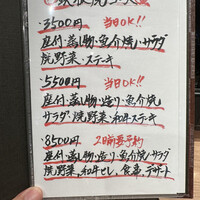 ・3500円 当日OK!!
座付・蒸し物・魚介焼・サラダ
焼野菜・ステーキ
・5500円 当日OK!!
座付・蒸し物・造り・魚介焼
サラダ・焼野菜・和牛ステーキ
・8500円 2日前要予約
座付・蒸し物・造り・魚介焼・サラダ
焼野菜、和牛ヒレ、食事 デザート